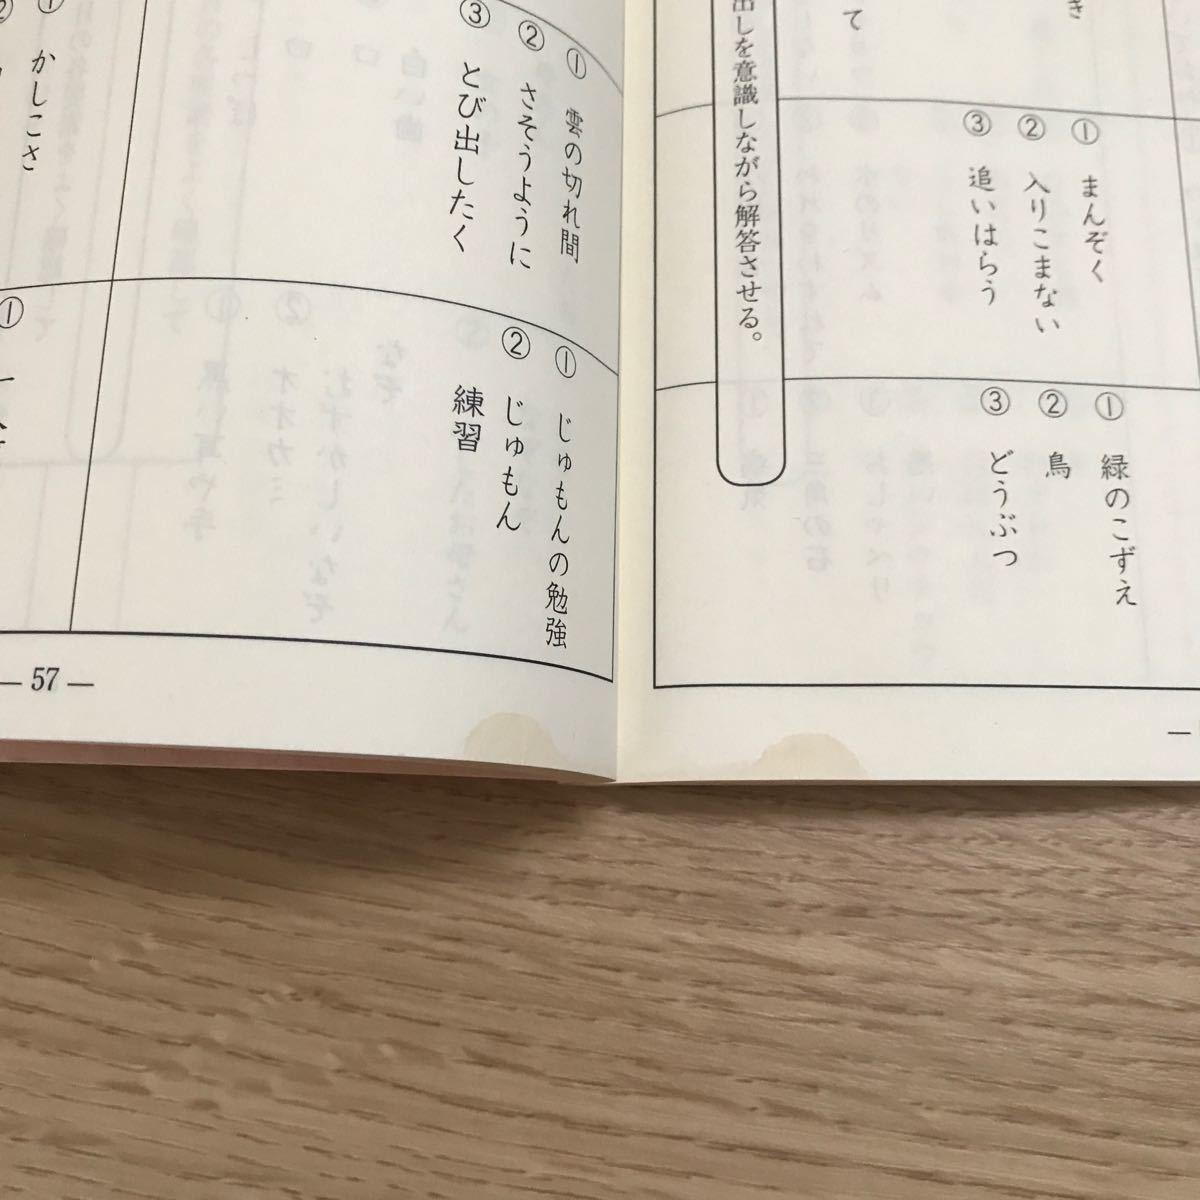 き
て
① まんぞく
② 入りこまない
③ 追いはらう
① 緑のこずえ
② 鳥
③ どうぶつ
出しを意識しながら解答させる。
① 雲の切れ間
② さそうように
③ とび出したく
① じゅもんの勉強
② じゅもん
練習
① かしこさ
②
①
— 57 —